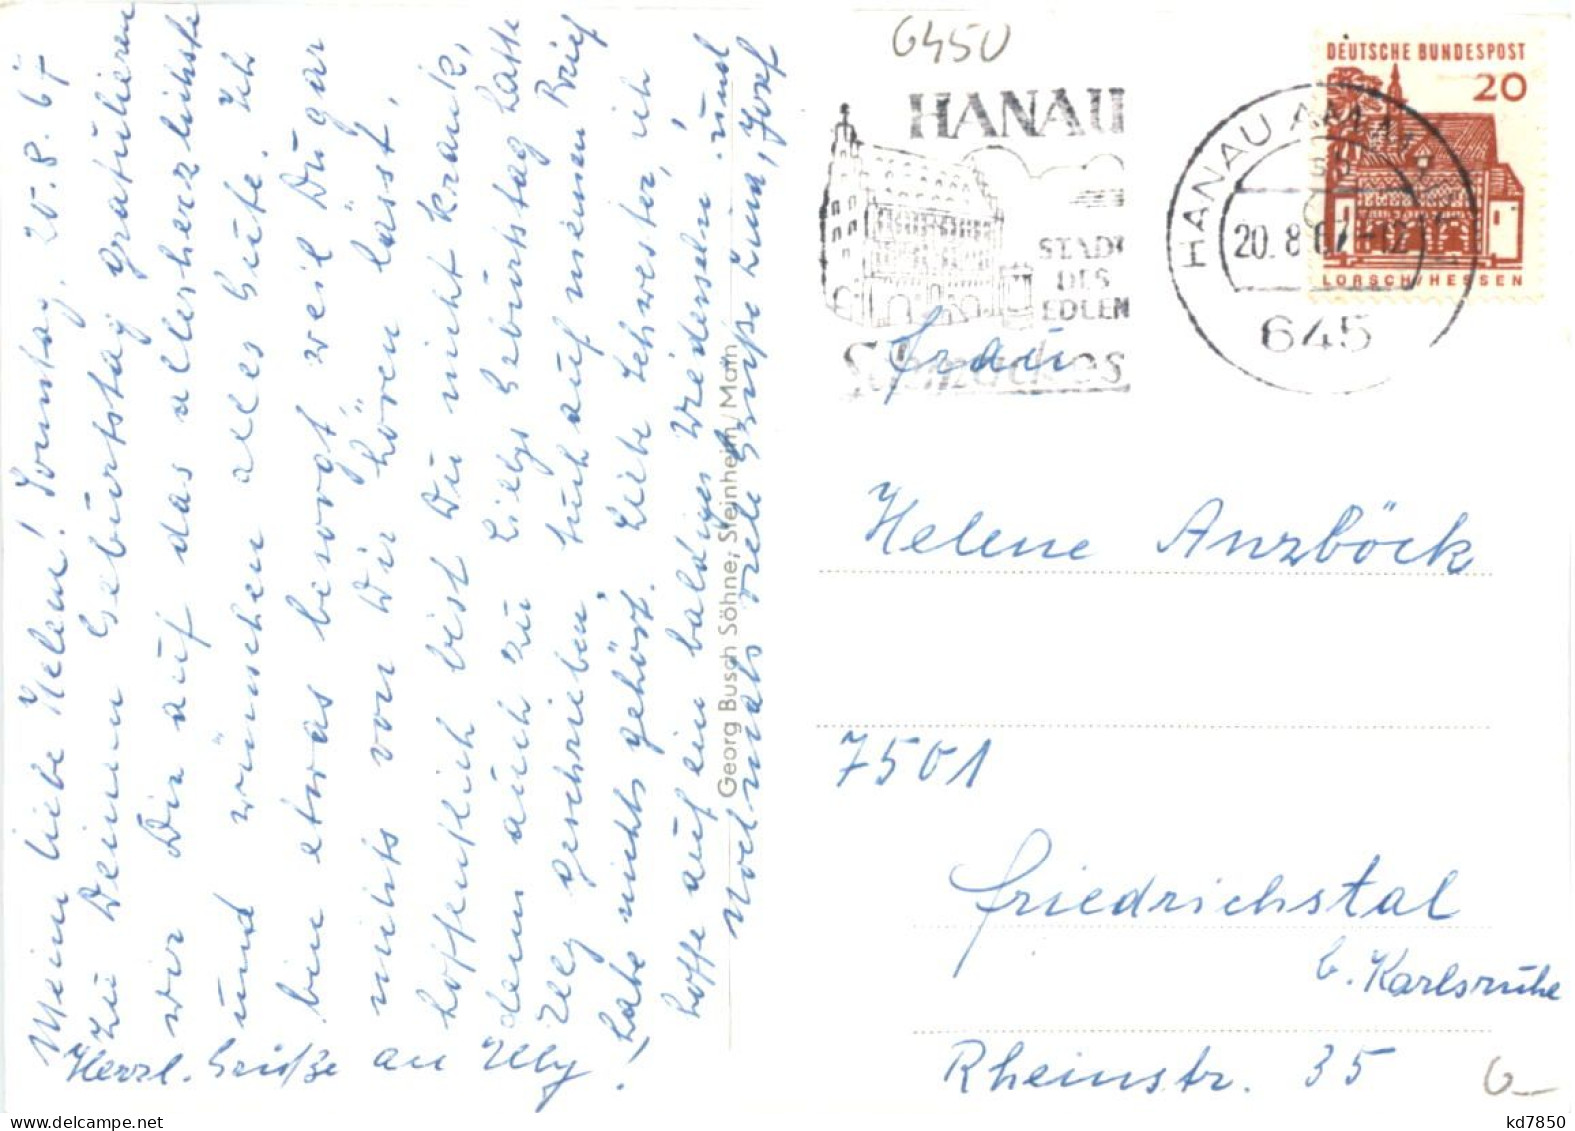 Mein liebe Helene! Sonntag, 20.8.67
zu Deinem Geburtstag gratulieren
wir Dir auf das allerherzlichste
und wünschen alles Gute. Ich
bin etwas besorgt, weil Du gar
nichts von Dir hören lässt,
hoffentlich bist Du nicht krank,
denn auch zu Lillys Geburtstag hatte
Elly geschrieben, auch auf meinen Brief
habe nichts gehört. Liebe Schwester, ich
hoffe auf ein baldiges Wiedersehn und
nochmals viele Grüße Lum, Josef
Herzl. Grüße an Elly!
Georg Busch Söhne, Steinheim/Main
6450
HANAU
STADT
DES
EDLEN
Schmuckes
HANAU AM MAIN
20.8.67-12
645
DEUTSCHE BUNDESPOST
20
LORSCH/HESSEN
Frau
Helene Anzböck
7501
Friedrichstal
b. Karlsruhe
Rheinstr. 35
6-
kd7850